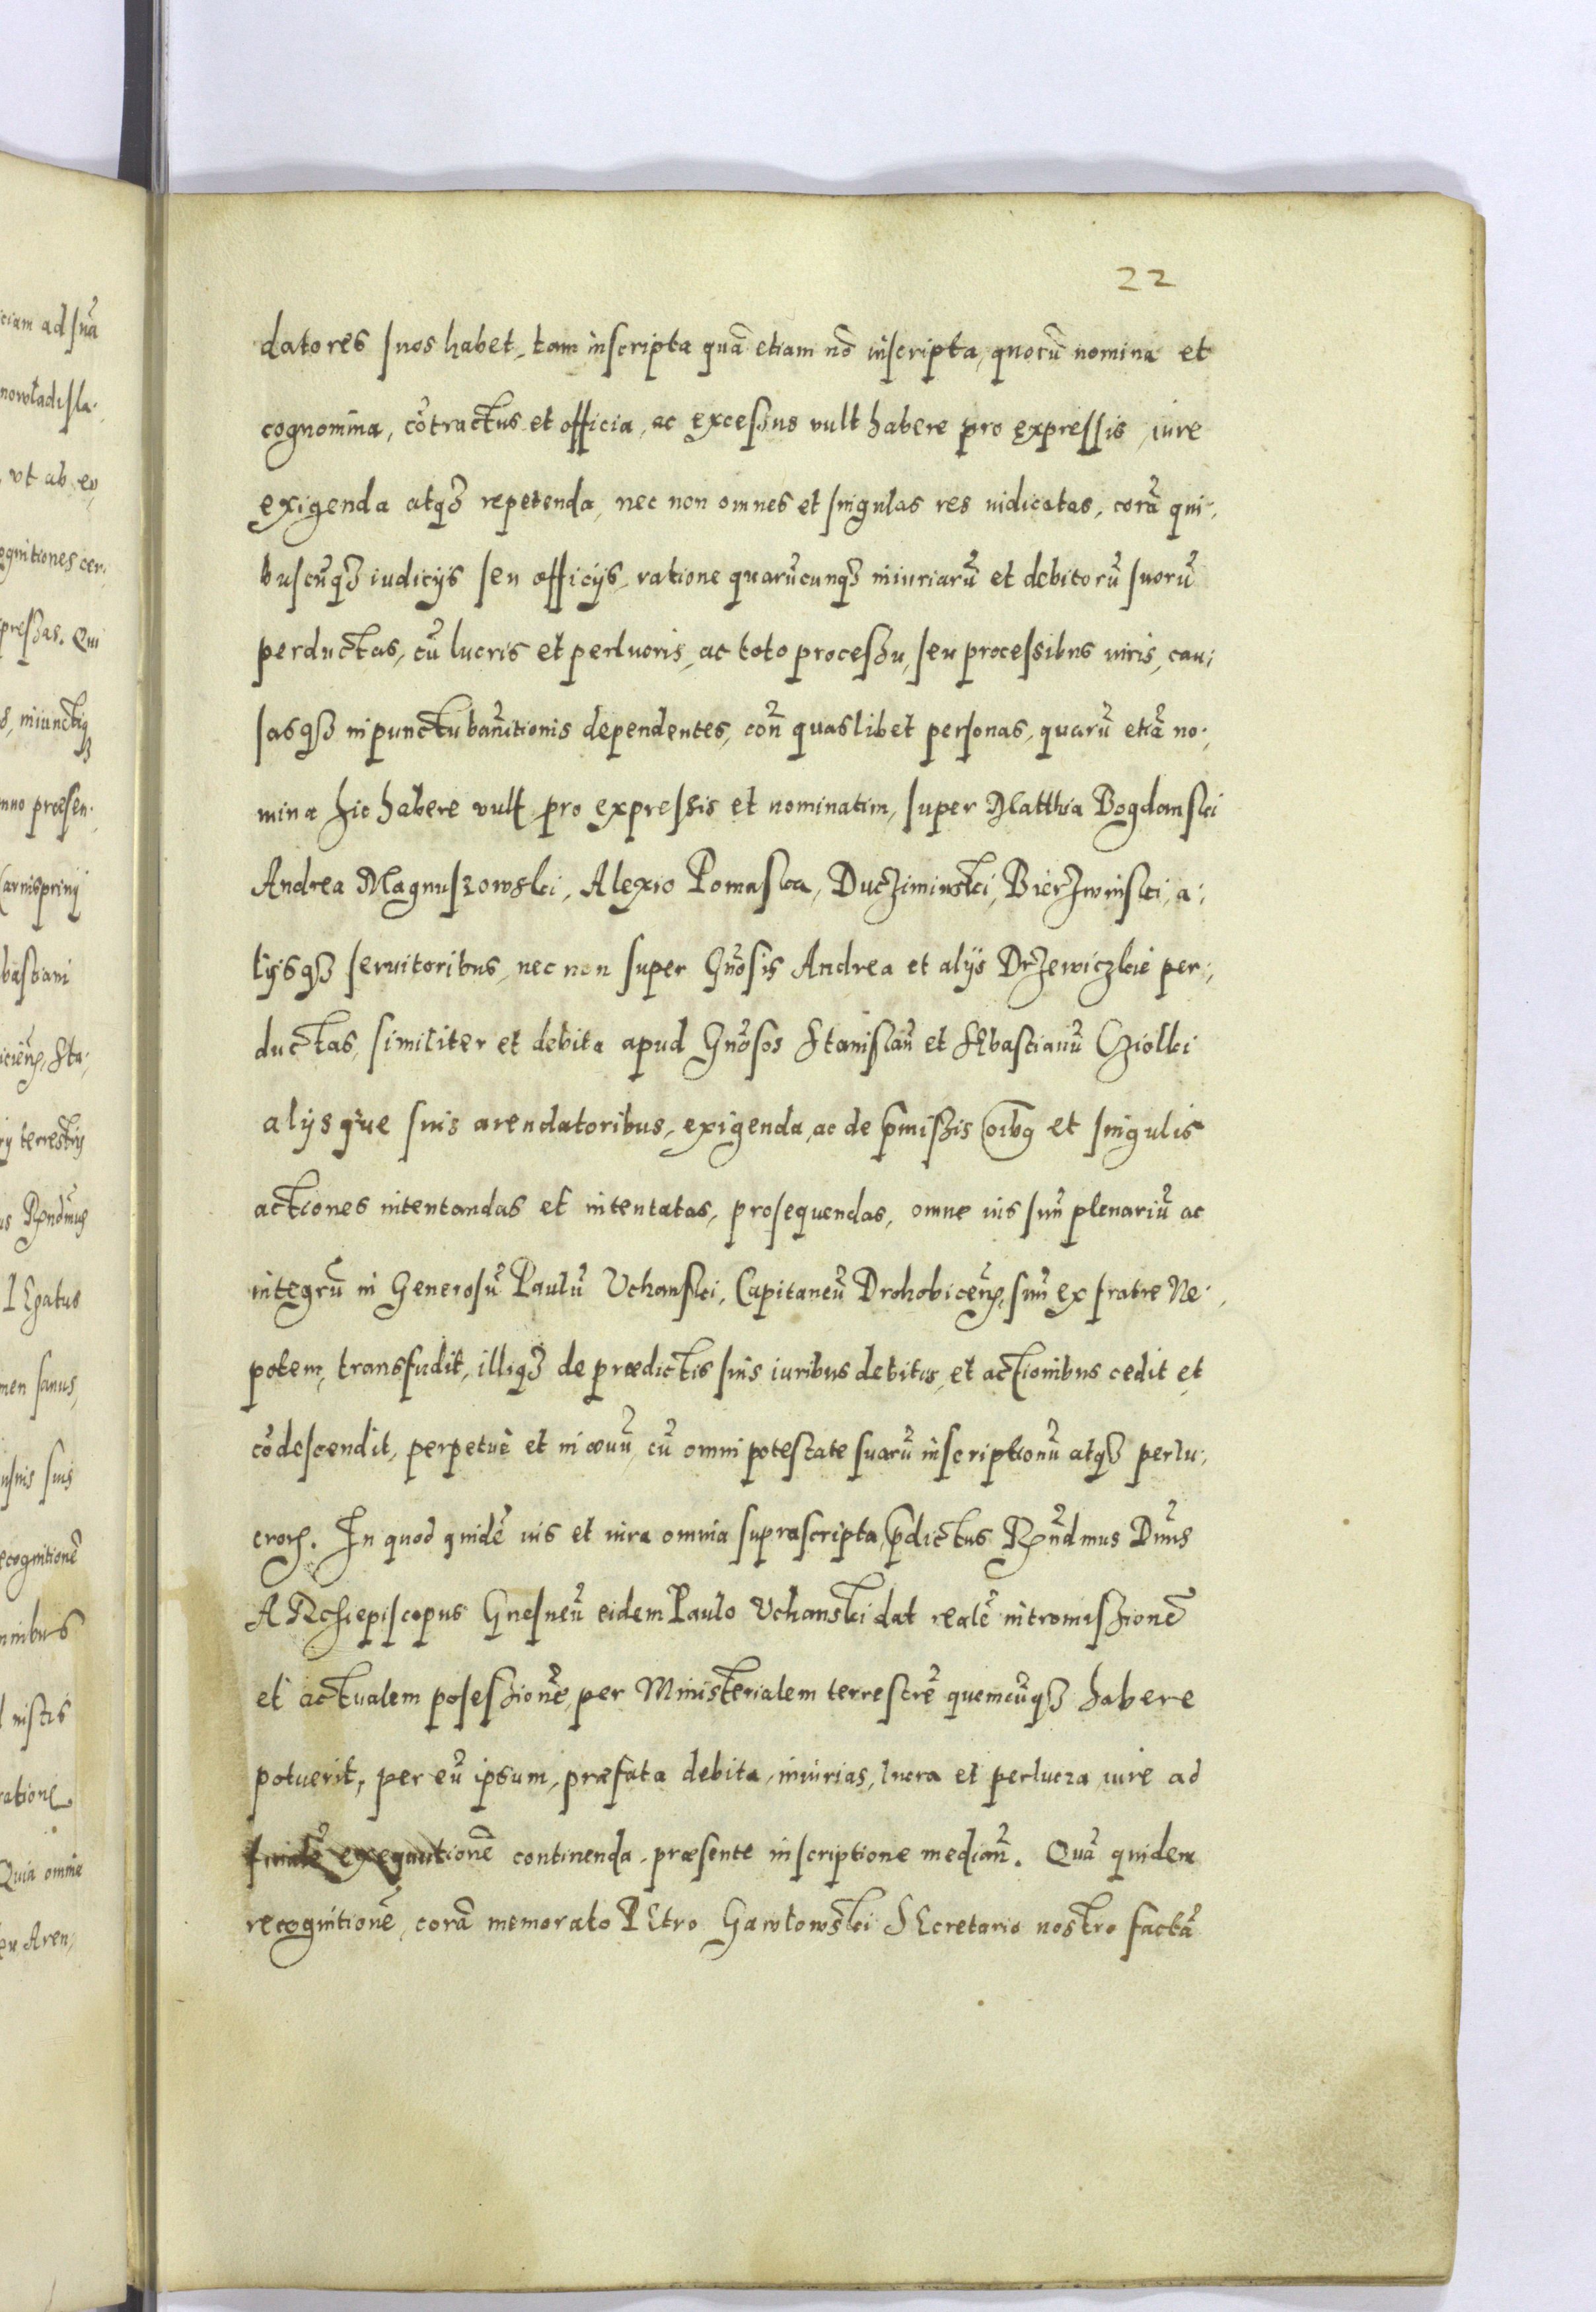 22
datores suos habet, tam inscripta quā etiam nō inscripta, quorū nomina et
cognomina, cōtractus et officia, ac excessus vult habere pro expressis, iure
exigenda atqꝫ repetenda, nec non omnes et singulas res iudicatas, corā qui-
buscūqꝫ iudicijs seu officijs, ratione quarūcunqꝫ iniuriarū et debitorū suorū
perductas, cū lucris et perlucris, ac toto processu, seu processibus iuris, cau-
sasqꝫ in punctu bannitionis dependentes, con̄ quaslibet personas, quarū etiā no-
mina hic habere vult pro expressis et nominatim, super Matthia Bogdanski
Andrea Magnuszowski, Alexio Pomaska, Ducziminski, Bierzwinski, a-
lijsqꝫ seruitoribus, nec non super Gn̄osis Andrea et alijs Drzewiczkie per-
ductas, similiter et debita apud Gn̄osos Stanislaū et Sebastianū Cziolki
alijsque suis arendatoribus, exigenda, ac de p̄missis oībꝰ et singulis
actiones intentandas et intentatas, prosequendas, omne ius suū plenariū ac
integrū in Generosū Paulū Uchanski, Capitaneū Drohobiceñ, suū ex fratre Ne-
potem, transfudit, illiqꝫ de prædictis suis iuribus debitis, et actionibus cedit et
cōdescendit, perpetuè et in æuū, cū omni potestate suarū inscriptionū atqꝫ perlu-
croꝝ. In quod quidē ius et iura omnia suprascripta, p̄dictus Rn̄dmus Dn̄us
ARchiepiscopus Gnesneñ eidem Paulo Uchanski dat realē intromissionē
et actualem posessionē, per Ministerialem terrestrē quemcūqꝫ habere
potuerit, per eū ipsum, præfata debita, iniurias, lucra et perlucra iure ad
finalē exequutionē continenda, præsente inscriptione median̄. Quā quidem
recognitionē, corā memorato PEtro Gawłowski SEcretario nostro factā